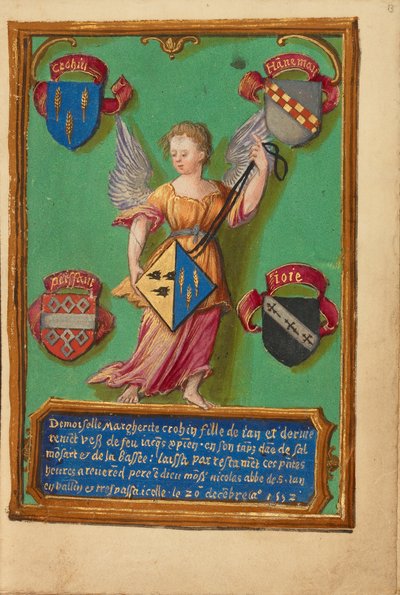 13
Crohin
Hānemou
perssant
ioie
Demoiselle Margherite crohin fille de ian et derme
remēt vefs de feu iacqs xpien · en son tāps dāe de sal
mōsart et de la bassee : laissa par testamēt ces pñtes
heures a reuerēd pere ē dieu mōsr nicolas abbe de s · ian
en vallēn et trespassa icelle · le 20 decēbre